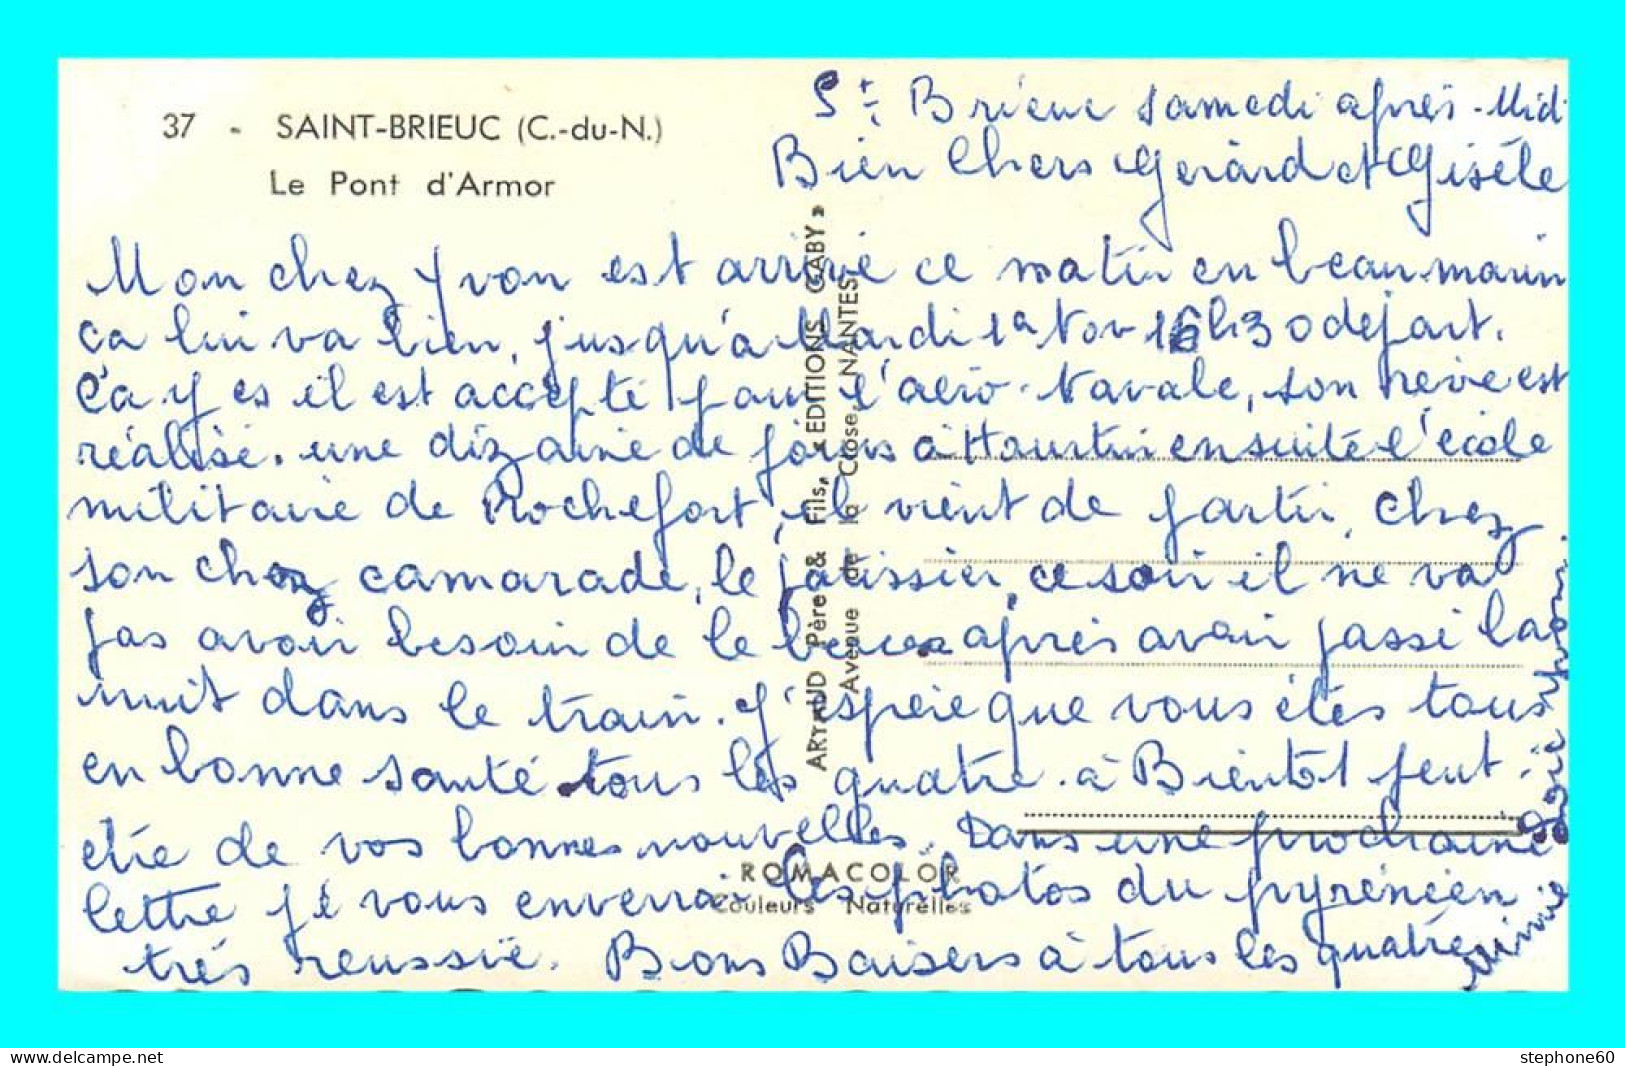 37 - SAINT-BRIEUC (C.-du-N.)
Le Pont d'Armor
St Brieuc samedi après-Midi
Bien Chers Gerard et Gisèle
Mon chez Yvon est arrivé ce matin en beau marin
ca lui va bien, jusqu'à Mardi 1a Nov 16h30 depart.
Ca y es il est accepté pour l'aéro-Navale, son rêve est
réalisé. une dizaine de jours à Hourtin ensuite l'école
militaire de Rochefort, il vient de partir, chez
son chez camarade, le patissier, ce soir il ne va
pas avoir besoin de le bercer après avoir passé la
nuit dans le train. J'espère que vous êtes tous
en bonne santé tous les quatre. à Bientôt peut-
etre de vos bonnes nouvelles. Dans une prochaine
lettre je vous enverrai les photos du pyrénéen
très reussie. Bons Baisers à tous les quatre
Mimie
ARTAUD Père & Fils, « EDITIONS GABY »
Avenue de la Close, NANTES
ROMACOLOR
Couleurs Naturelles
stephone60